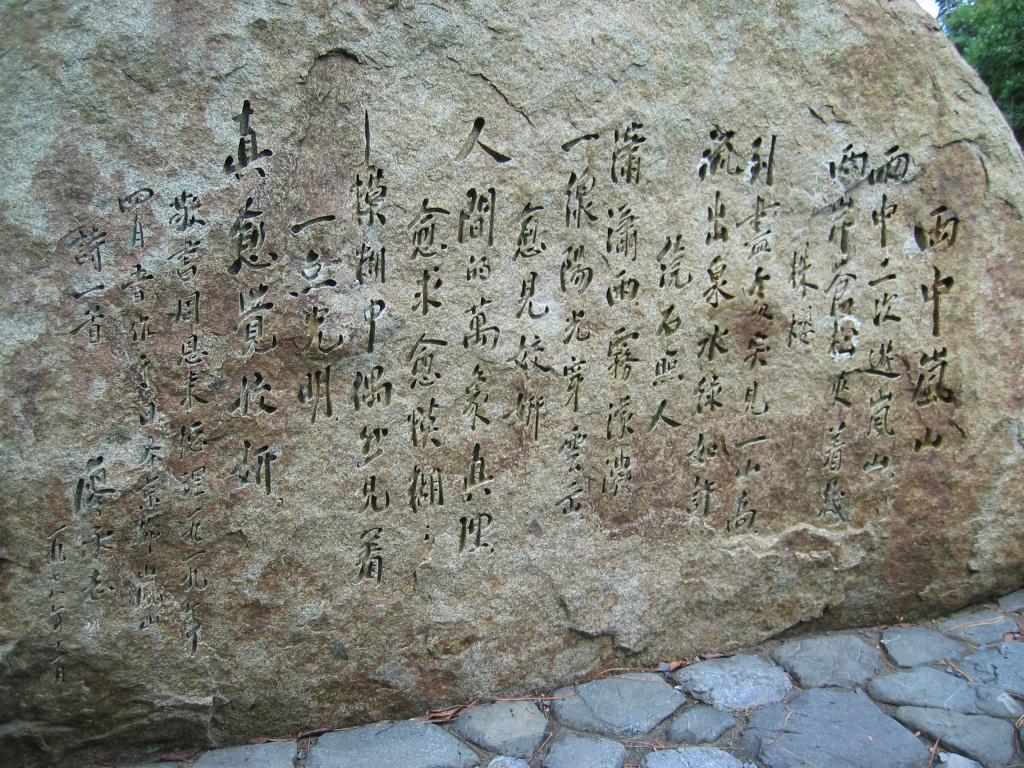 雨中嵐山
雨中二次遊嵐山
兩岸蒼松夾着幾
株櫻
到盡處突見一山高
流出泉水綠如許
繞石照人
瀟瀟雨霧濛濃
一線陽光穿雲出
愈見姣妍
人間的萬象真理
愈求愈模糊
模糊中偶然見着
一点光明
真愈覺姣妍
敬書周恩来總理一九一九年
四月五日作于日本京都嵐山
詩一首
廖承志
一九七八年十一月